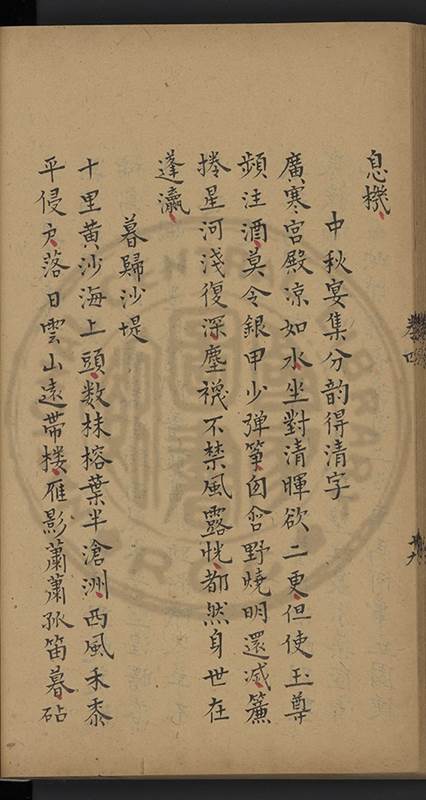 息機
中秋宴集分韵得清字
廣寒宮殿涼如水坐對清暉欲二更但使玉尊
頻注酒莫令銀甲少弹箏囱睂野燒明還滅簾
捲星河淺復深塵襪不禁風露恍都然身世在
蓬瀛
暮歸沙堤
十里黄沙海上頭数株榕葉半滄洲西風禾黍
平侵戶落日雲山遠帶楼雁影蕭蕭孤笛暮砧